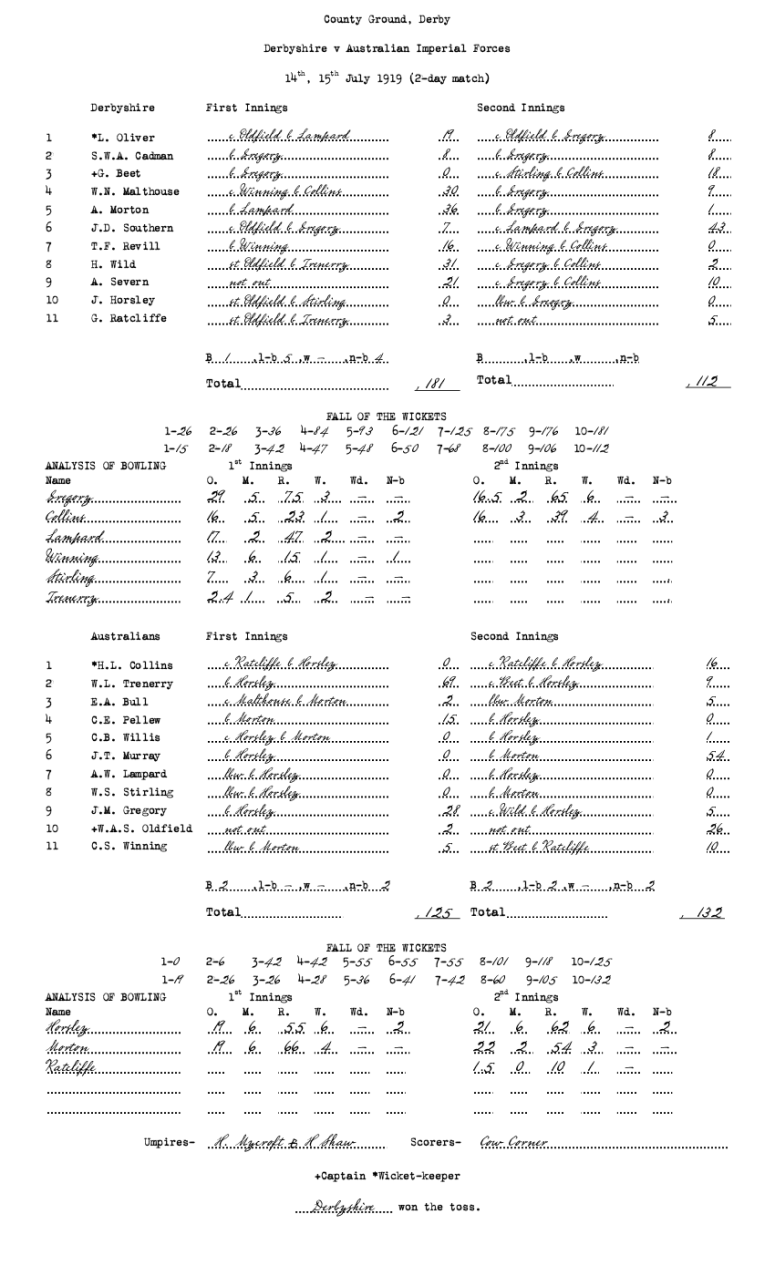 County Ground, Derby
Derbyshire v Australian Imperial Forces
14th, 15th July 1919 (2-day match)
Derbyshire First Innings Second Innings
1 *L. Oliver c. Oldfield b. Lampard 19 c. Oldfield b. Gregory 8
2 S.W.A. Cadman b. Gregory 8 b. Gregory 8
3 +G. Beet b. Gregory 0 c. Stirling b. Collins 18
4 W.N. Malthouse c. Winning b. Collins 30 b. Gregory 9
5 A. Morton b. Lampard 36 b. Gregory 1
6 J.D. Southern c. Oldfield b. Gregory 7 c. Lampard b. Gregory 43
7 T.F. Revill b. Winning 16 c. Winning b. Collins 0
8 H. Wild st. Oldfield b. Trenerry 31 c. Gregory b. Collins 2
9 A. Severn not out 21 c. Gregory b. Collins 10
10 J. Horsley st. Oldfield b. Stirling 0 lbw. b. Gregory 0
11 G. Ratcliffe st. Oldfield b. Trenerry 3 not out 5
B 1 ,l-b 5 ,w – ,n-b 4 B ,l-b ,w ,n-b
Total , 181 Total , 112
FALL OF THE WICKETS
1-26 2-26 3-36 4-84 5-93 6-121 7-125 8-175 9-176 10-181
1-15 2-18 3-42 4-47 5-48 6-50 7-68 8-100 9-106 10-112
ANALYSIS OF BOWLING 1st Innings 2nd Innings
Name O. M. R. W. Wd. N-b O. M. R. W. Wd. N-b
Gregory 29 5 75 3 – – 16.5 2 65 6 – –
Collins 16 5 23 1 – 2 16 3 39 4 – 3
Lampard 17 2 47 2 – –
Winning 13 6 15 1 – 1
Stirling 7 3 6 1 – –
Trenerry 2.4 1 5 2 – –
Australians First Innings Second Innings
1 *H.L. Collins c. Ratcliffe b. Horsley 0 c. Ratcliffe b. Horsley 16
2 W.L. Trenerry b. Horsley 69 c. Beet b. Horsley 9
3 E.A. Bull c. Malthouse b. Morton 2 lbw. Morton 5
4 C.E. Pellew b. Morton 15 b. Horsley 0
5 C.B. Willis c. Horsley b. Morton 0 b. Horsley 1
6 J.T. Murray b. Horsley 0 b. Morton 54
7 A.W. Lampard lbw. b. Horsley 0 b. Horsley 0
8 W.S. Stirling lbw. b. Horsley 0 b. Morton 0
9 J.M. Gregory b. Horsley 28 c. Wild b. Horsley 5
10 +W.A.S. Oldfield not out 2 not out 26
11 C.S. Winning lbw. b. Morton 5 st. Beet b. Ratcliffe 10
B 2 ,l-b – ,w – ,n-b 2 B 2 ,l-b 2 ,w – ,n-b 2
Total , 125 Total , 132
FALL OF THE WICKETS
1-0 2-6 3-42 4-42 5-55 6-55 7-55 8-101 9-118 10-125
1-19 2-26 3-26 4-28 5-36 6-41 7-42 8-60 9-105 10-132
ANALYSIS OF BOWLING 1st Innings 2nd Innings
Name O. M. R. W. Wd. N-b O. M. R. W. Wd. N-b
Horsley 19 6 55 6 – 2 21 6 62 6 – 2
Morton 19 6 66 4 – – 22 2 54 3 – –
Ratcliffe 1.5 0 10 1 –
Umpires- H. Mycroft & H Shaw Scorers- Cow Corner
+Captain *Wicket-keeper
Derbyshire won the toss.